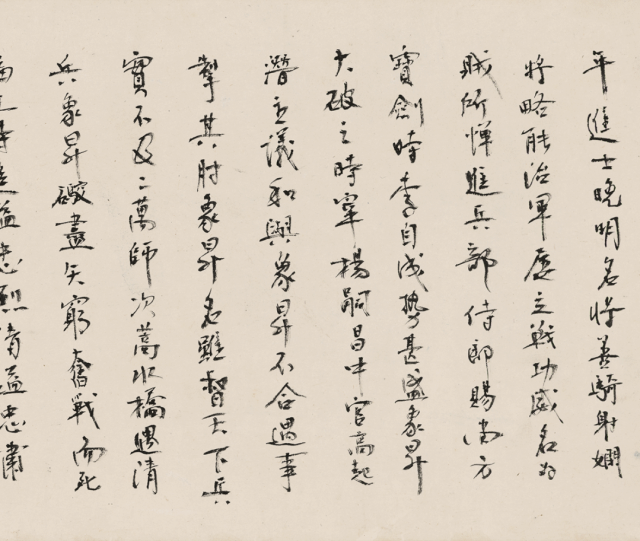 年進士晚明名將善騎射嫻
將略能治軍屢立戰功威名為
賊所憚進兵部侍郎賜尚方
寶劍時李自成勢甚盛象昇
大破之時宰楊嗣昌中官高起
潛主議和與象昇不合遇事
掣其肘象昇名雖督天下兵
實不及二萬師次蒿水橋遇清
兵象昇礮盡矢窮奮戰而死
追諡忠烈清諡忠肅